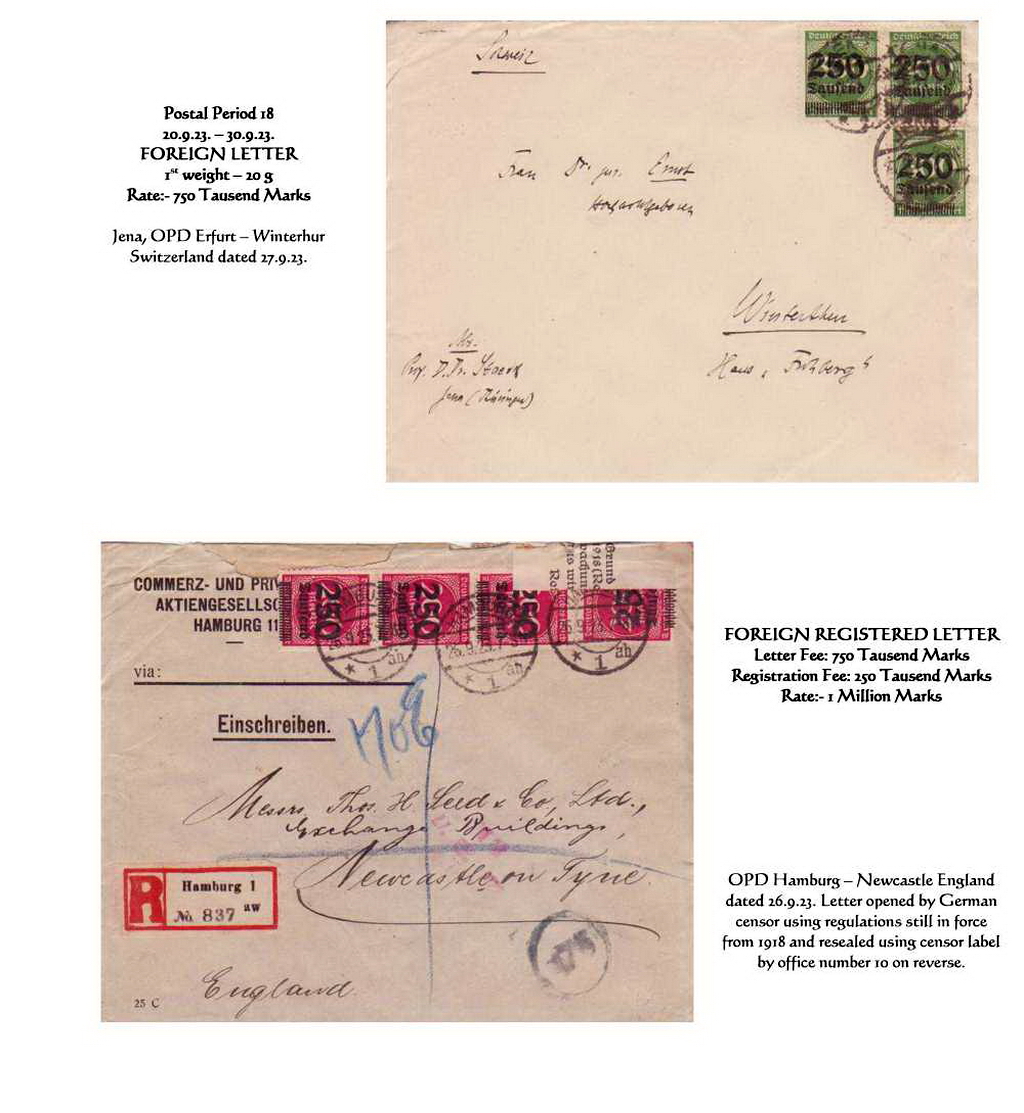 Postal Period 18
20.9.23. – 30.9.23.
FOREIGN LETTER
1st weight – 20 g
Rate:- 750 Tausend Marks
Jena, OPD Erfurt – Winterhur
Switzerland dated 27.9.23.
Schweiz
Deutsches Reich
Deutsches Reich
250 250
Tausend Tausend
250
Tausend
Frau Dr. jur. Ernst
Winterthur
Haus
Prof. D. Dr. Staerk
Jena (Thüringen)
COMMERZ- UND PRIV
AKTIENGESELLSC
HAMBURG 11
via:
Einschreiben.
250 250 250 25
Tausend Tausend
Grund
1918 (Re
wachun
Res
26.9.23
* 1 ah
26.9.23
* 1 ah
26.9.23
* 1 ah
Messrs. Thos. H Seed & Co, Ltd.,
Exchange Buildings,
Newcastle on Tyne.
R Hamburg 1
No. 837 aw
England.
25 C
FOREIGN REGISTERED LETTER
Letter Fee: 750 Tausend Marks
Registration Fee: 250 Tausend Marks
Rate:- 1 Million Marks
OPD Hamburg – Newcastle England
dated 26.9.23. Letter opened by German
censor using regulations still in force
from 1918 and resealed using censor label
by office number 10 on reverse.